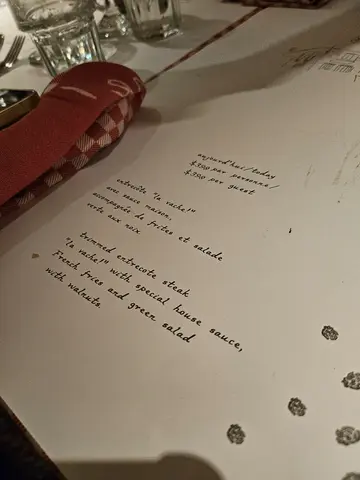 aujourd'hui/today
$390 par personne/
$390 per guest
entrecôte "la vache!"
avec sauce maison,
accompagnée de frites et salade
verte aux noix
trimmed entrecote steak
"la vache!" with special house sauce,
French fries and green salad
with walnuts